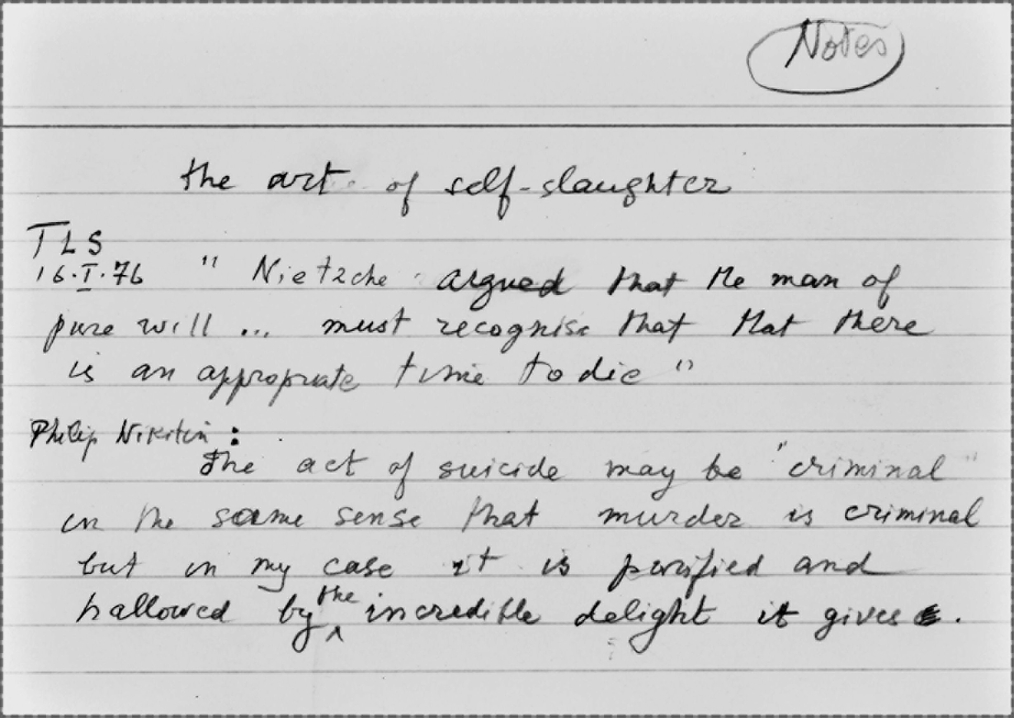 Notes
the art of self-slaughter
TLS
16.I.76 " Nietzche argued that the man of
pure will ... must recognise that that there
is an appropriate time to die "
Philip Nikitin :
The act of suicide may be "criminal"
in the same sense that murder is criminal
but in my case it is purified and
hallowed by the incredible delight it gives.